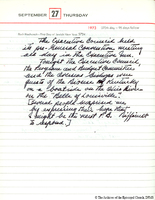 SEPTEMBER 27 THURSDAY
1973
The Executive Council held
its pre-General Convention meeting
all day in the Executive Inn.
Tonight the Executive Council,
the Program and Budget Committee
and the Overseas Bishops were
guests of the Diocese of Kentucky
on a boatride on the Ohio River
on the "Belle of Louisville".
Several people surprised me
by expressing their hope that
I might be the next P.B. Difficult
to respond!
© The Archives of the Episcopal Church, DFMS